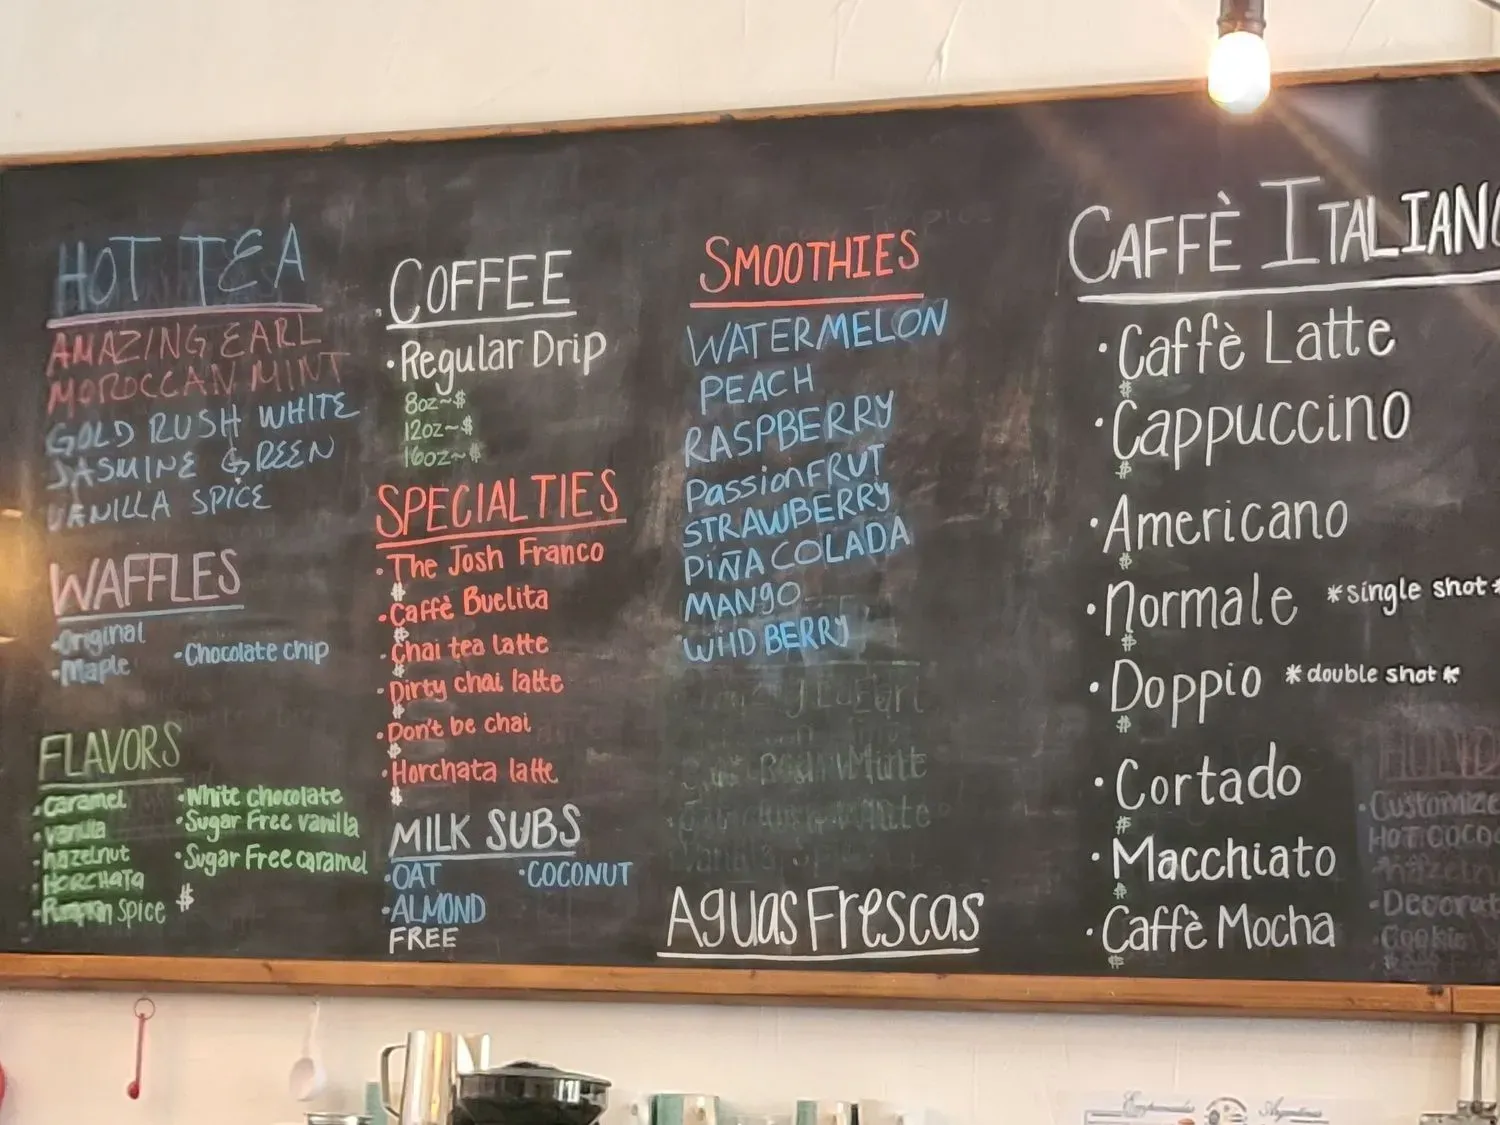 HOT TEA
AMAZING EARL
MOROCCAN MINT
GOLD RUSH WHITE
JASMINE GREEN
VANILLA SPICE
WAFFLES
·Original
·Maple
·Chocolate chip
FLAVORS
·Caramel
·vanilla
·hazelnut
·HORCHATA
·Pumpkin Spice
·White chocolate
·Sugar Free vanilla
·Sugar Free caramel
$
COFFEE
·Regular Drip
8oz~$
12oz~$
16oz~$
SPECIALTIES
·The Josh Franco
$
·Caffè Buelita
$
·Chai tea latte
$
·Dirty chai latte
$
·Don't be chai
$
·Horchata latte
$
MILK SUBS
·OAT
·COCONUT
·ALMOND
FREE
SMOOTHIES
WATERMELON
PEACH
RASPBERRY
PassionFRUT
STRAWBERRY
PIÑA COLADA
MANgO
WIlD BERRY
Aguas Frescas
CAFFÈ ITALIANO
·Caffè Latte
$
·Cappuccino
$
·Americano
$
·Normale *single shot*
$
·Doppio *double shot*
$
·Cortado
$
·Macchiato
$
·Caffè Mocha
$
·Customize
HOT COCO
·Decorat
·Cookie
Empanadas Argentinas